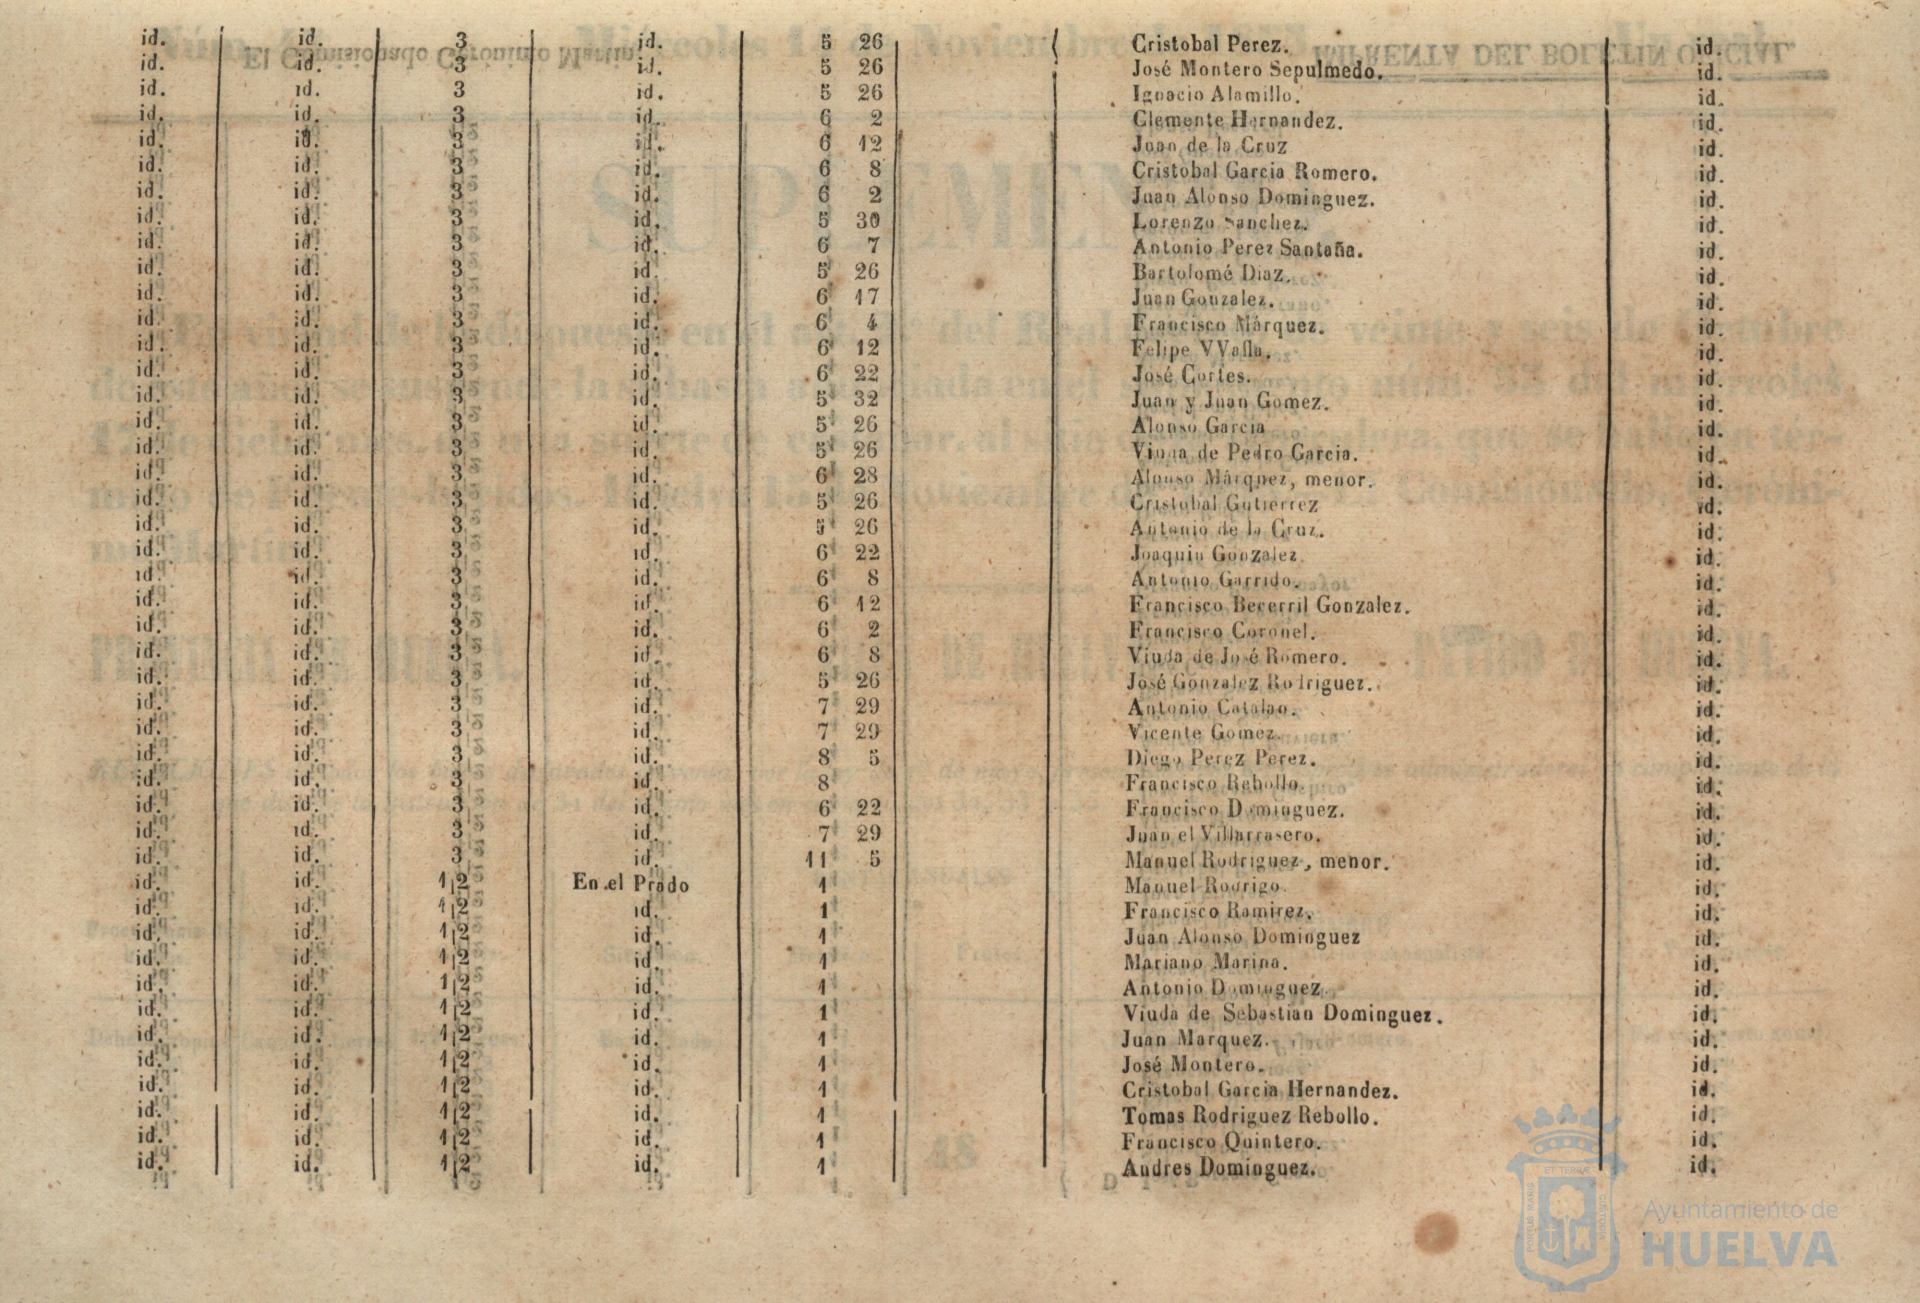 id. id. 3 id. 5 26 Cristobal Perez. id.
id. id. 3 id. 5 26 José Montero Sepulmedo. id.
id. id. 3 id. 5 26 Ignacio Alamillo. id.
id. id. 3 id. 6 2 Clemente Hernandez. id.
id. id. 3 id. 6 12 Juan de la Cruz id.
id. id. 3 id. 6 8 Cristobal Garcia Romero. id.
id. id. 3 id. 6 2 Juan Alonso Dominguez. id.
id. id. 3 id. 5 30 Lorenzo Sanchez. id.
id. id. 3 id. 6 7 Antonio Perez Santaña. id.
id. id. 3 id. 5 26 Bartolomé Diaz. id.
id. id. 3 id. 6 17 Juan Gonzalez. id.
id. id. 3 id. 6 4 Francisco Márquez. id.
id. id. 3 id. 6 12 Felipe id.
id. id. 3 id. 6 22 José Cortes. id.
id. id. 3 id. 5 32 Juan y Juan Gomez. id.
id. id. 3 id. 5 26 Alonso Garcia id.
id. id. 3 id. 5 26 Viuda de Pedro Garcia. id.
id. id. 3 id. 6 28 Alonso Márquez, menor. id.
id. id. 3 id. 5 26 Cristobal Gutierrez id.
id. id. 3 id. 5 26 Antonio de la Cruz. id.
id. id. 3 id. 6 22 Joaquin Gonzalez. id.
id. id. 3 id. 6 8 Antonio Garrido. id.
id. id. 3 id. 6 12 Francisco Becerril Gonzalez. id.
id. id. 3 id. 6 2 Francisco Coronel. id.
id. id. 3 id. 6 8 Viuda de José Romero. id.
id. id. 3 id. 5 26 José Gonzalez Rodriguez. id.
id. id. 3 id. 7 29 Antonio Catalao. id.
id. id. 3 id. 7 29 Vicente Gomez. id.
id. id. 3 id. 8 5 Diego Perez Perez. id.
id. id. 3 id. 8 Francisco Rebollo. id.
id. id. 3 id. 6 22 Francisco Dominguez. id.
id. id. 3 id. 7 29 Juan el Villarrasero. id.
id. id. 3 id. 11 5 Manuel Rodriguez, menor. id.
id. id. 1|2 En el Prado 1 Manuel Rodrigo. id.
id. id. 1|2 id. 1 Francisco Ramirez. id.
id. id. 1|2 id. 1 Juan Alonso Dominguez id.
id. id. 1|2 id. 1 Mariano Marina. id.
id. id. 1|2 id. 1 Antonio Dominguez. id.
id. id. 1|2 id. 1 Viuda de Sebastian Dominguez. id.
id. id. 1|2 id. 1 Juan Marquez. id.
id. id. 1|2 id. 1 José Montero. id.
id. id. 1|2 id. 1 Cristobal Garcia Hernandez. id.
id. id. 1|2 id. 1 Tomas Rodriguez Rebollo. id.
id. id. 1|2 id. 1 Francisco Quintero. id.
id. id. 1|2 id. 1 Andres Dominguez. id.
Ayuntamiento de
HUELVA